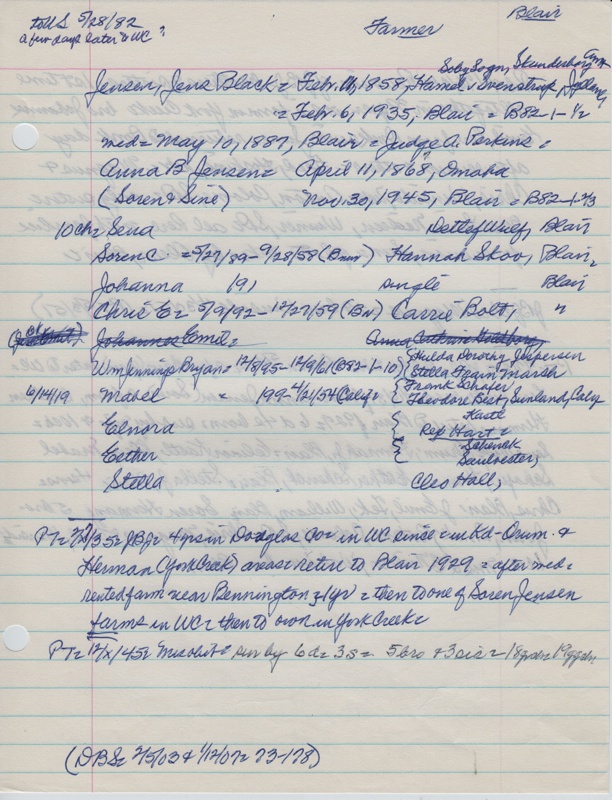 to US 5/28/82
a few days later to WC ?
Blair
Farmer
Soby Sogn, Skanderborg Amt
Jensen, Jens Black = Febr. 11, 1858, Hamel v Svenstrup, Jydland,
= Febr. 6, 1935, Blair = B82-1-½
med = May 10, 1887, Blair = Judge A. Perkins =
Anna B Jensen = April 11, 1868, Omaha
(Soren & Sine) Nov. 30, 1945, Blair = B82-1-7/3
10 ch = Sena Detlef Wulf, Blair
Soren C = 5/27/89 - 9/28/58 (Bnur) Hannah Skov, Blair,
Johanna 19, single Blair
Chris E = 5/9/92 - 12/27/59 (Bn) Carrie Bolt, "
Johannes Emil =
Wm Jennings Bryan = 12/8/95 - 12/9/61 (B82-1-10) { Hulda Dorothy Jespersen
{ Stella Fern Marsh
6/14/19 Mabel = 199 - 4/21/54 Calif = { Frank Schafer,
{ Theodore Best, Sunland, Calif
Elnora Kaste
Rex Hart =
Esther Schenck
Saulvester,
Stella Cleo Hall,
PT = 2/7/35 = JBJ = 4 yrs in Douglas Co = in WC since = in Wd - Orum - &
Herman (York Creek) areas = retire to Blair 1929 = after med =
rented farm near Bennington 3-4 yr = then to one of Soren Jensen
farms in WC = then to own in York Creek =
PT = 12/x/45 = Mrs obit = sur by 6 d = 3 s = 5 bro & 3 sis = 18 gch = 19 ggch
(DBS = 2/5/03 & 1/12/07 = 73-178)